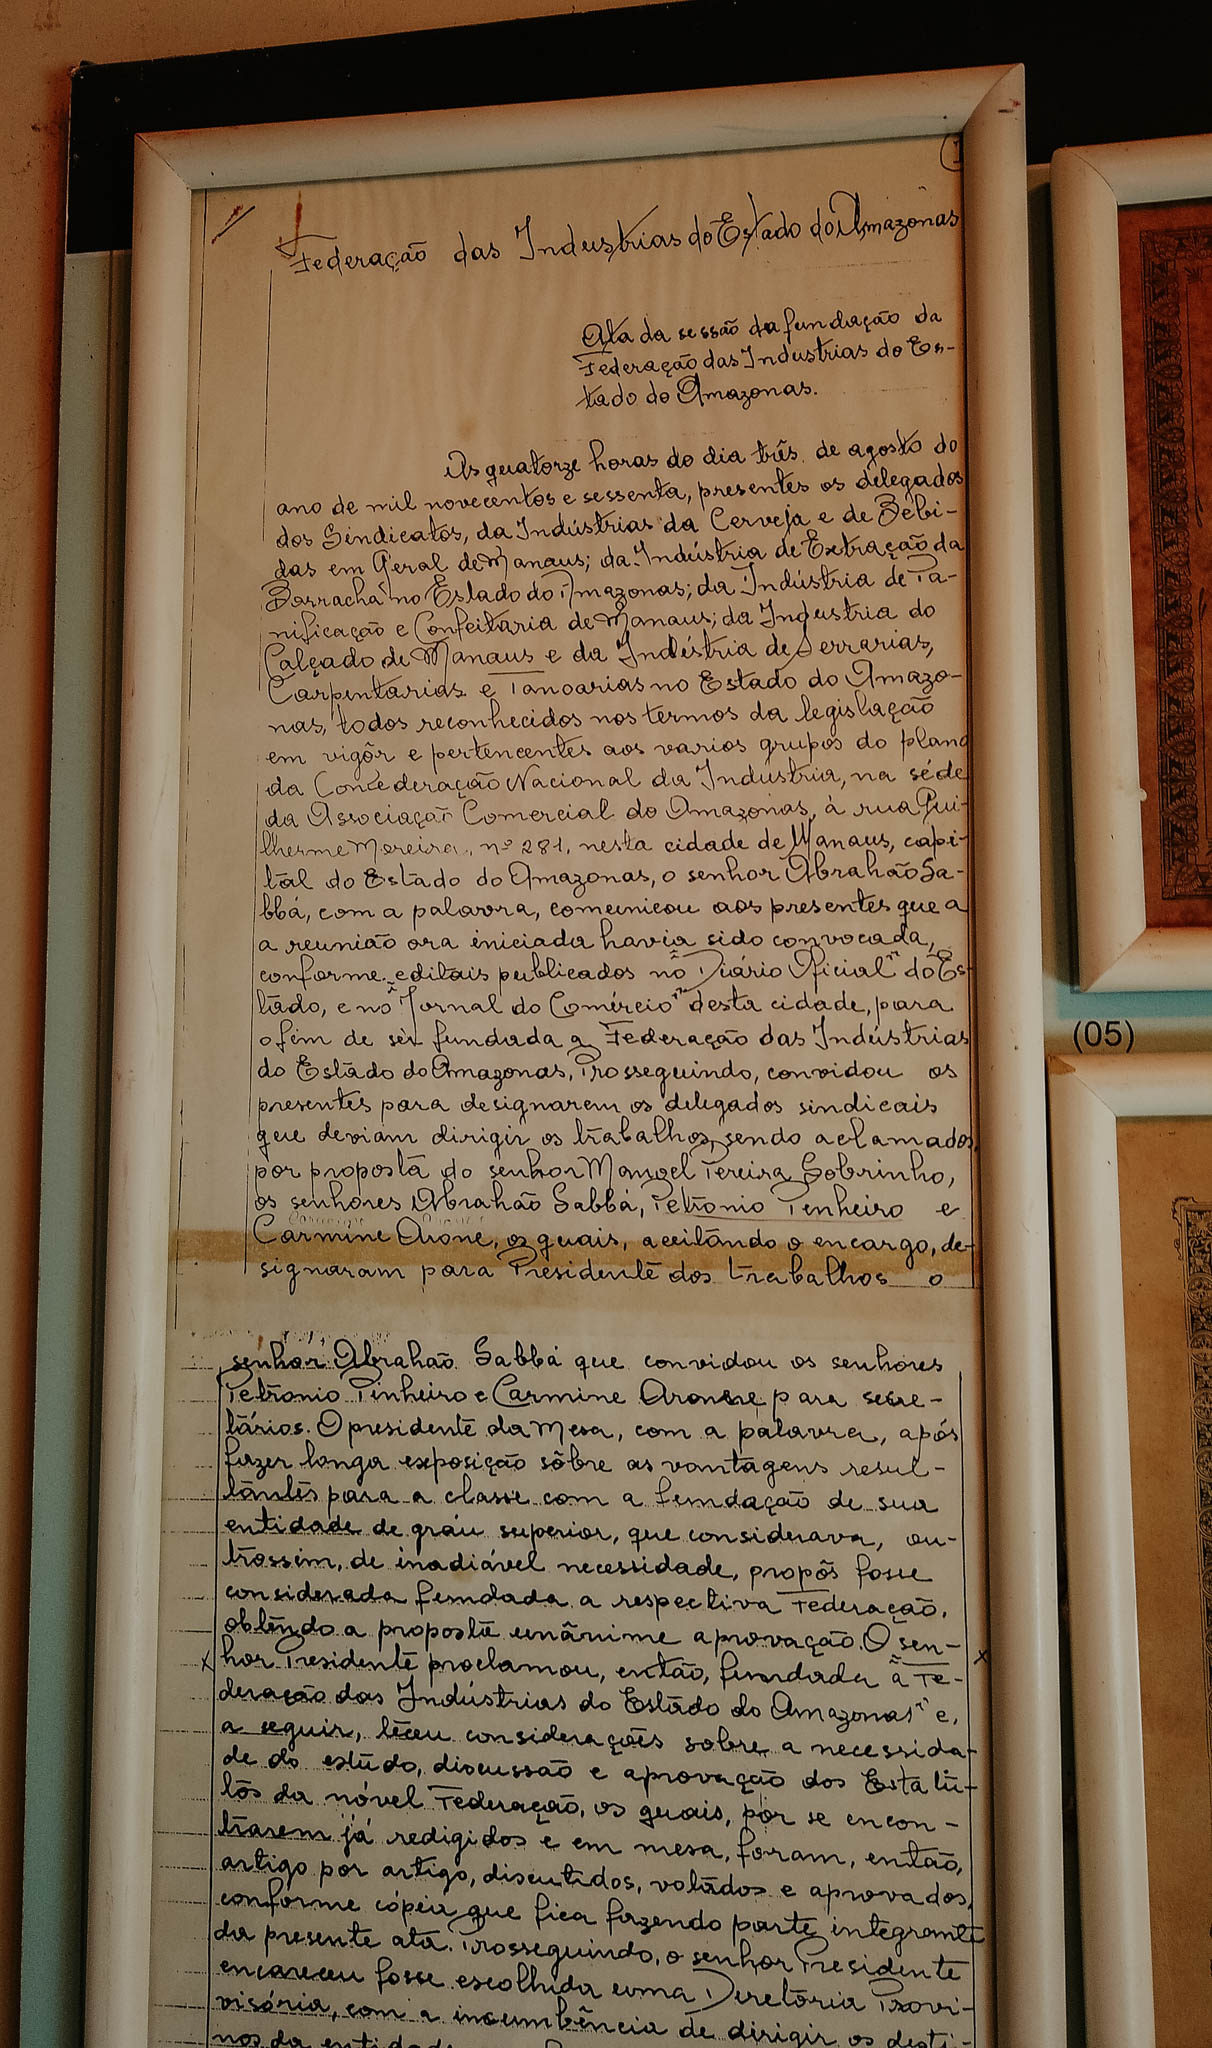 1
Federação das Industrias do Estado do Amazonas
Ata da sessão da fundação da
Federação das Industrias do Es-
tado do Amazonas.
As quatorze horas do dia três de agosto do
ano de mil novecentos e sessenta, presentes os delegados
dos Sindicatos, da Indústrias da Cerveja e de Bebi-
das em Geral de Manaus; da Indústria de Extração da
Borracha no Estado do Amazonas; da Indústria de Pa-
nificação e Confeitaria de Manaus; da Industria do
Calçado de Manaus e da Indústria de Serrarias,
Carpentarias e Tanoarias no Estado do Amazo-
nas, todos reconhecidos nos termos da legislação
em vigôr e pertencentes aos varios grupos do plano
da Confederação Nacional da Industria, na séde
da Associação Comercial do Amazonas, à rua Gui-
lherme Moreira, nº 281, nesta cidade de Manaus, capi-
tal do Estado do Amazonas, o senhor Abrahão Sa-
bbá, com a palavra, comunicou aos presentes que a
a reunião ora iniciada havia sido convocada,
conforme editais publicados no "Diário Oficial" do Es-
tado, e no "Jornal do Comércio" desta cidade, para
o fim de ser fundada a Federação das Indústrias
do Estado do Amazonas, Prosseguindo, convidou os
presentes para designarem os delegados sindicais
que deviam dirigir os trabalhos, sendo aclamados,
por proposta do senhor Manoel Pereira Sobrinho,
os senhores Abrahão Sabbá, Petronio Penheiro e
Carmine Arone, os quais, aceitando o encargo, de-
signaram para Presidente dos trabalhos o
senhor Abrahão Sabbá que convidou os senhores
Petronio Pinheiro e Carmine Arone para secre-
tários. O presidente da Mesa, com a palavra, após
fazer longa exposição sôbre as vantagens resul-
tantes para a classe com a fundação de sua
entidade de gráu superior, que considerava, ou-
trossim, de inadiável necessidade, propôs fosse
considerada fundada a respectiva Federação,
obtendo a proposta unânime aprovação. O sen-
x hor Presidente proclamou, então, fundada a "Fe- x
deração das Indústrias do Estado do Amazonas" e,
a seguir, teceu considerações sobre a necessida-
de do estudo, discussão e aprovação dos Estatu-
tos da nóvel Federação, os quais, por se encon-
trarem já redigidos e em mesa, foram, então,
artigo por artigo, discutidos, votados e aprovados,
conforme cópia que fica fazendo parte integrante
da presente ata. Prosseguindo, o senhor Presidente
encareceu fosse escolhida uma Diretoria Provi-
sória, com a incumbência de dirigir os desti-
nos da entidade
(05)